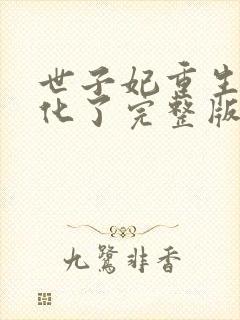 世子妃重生
化了完整版
九鹭非香